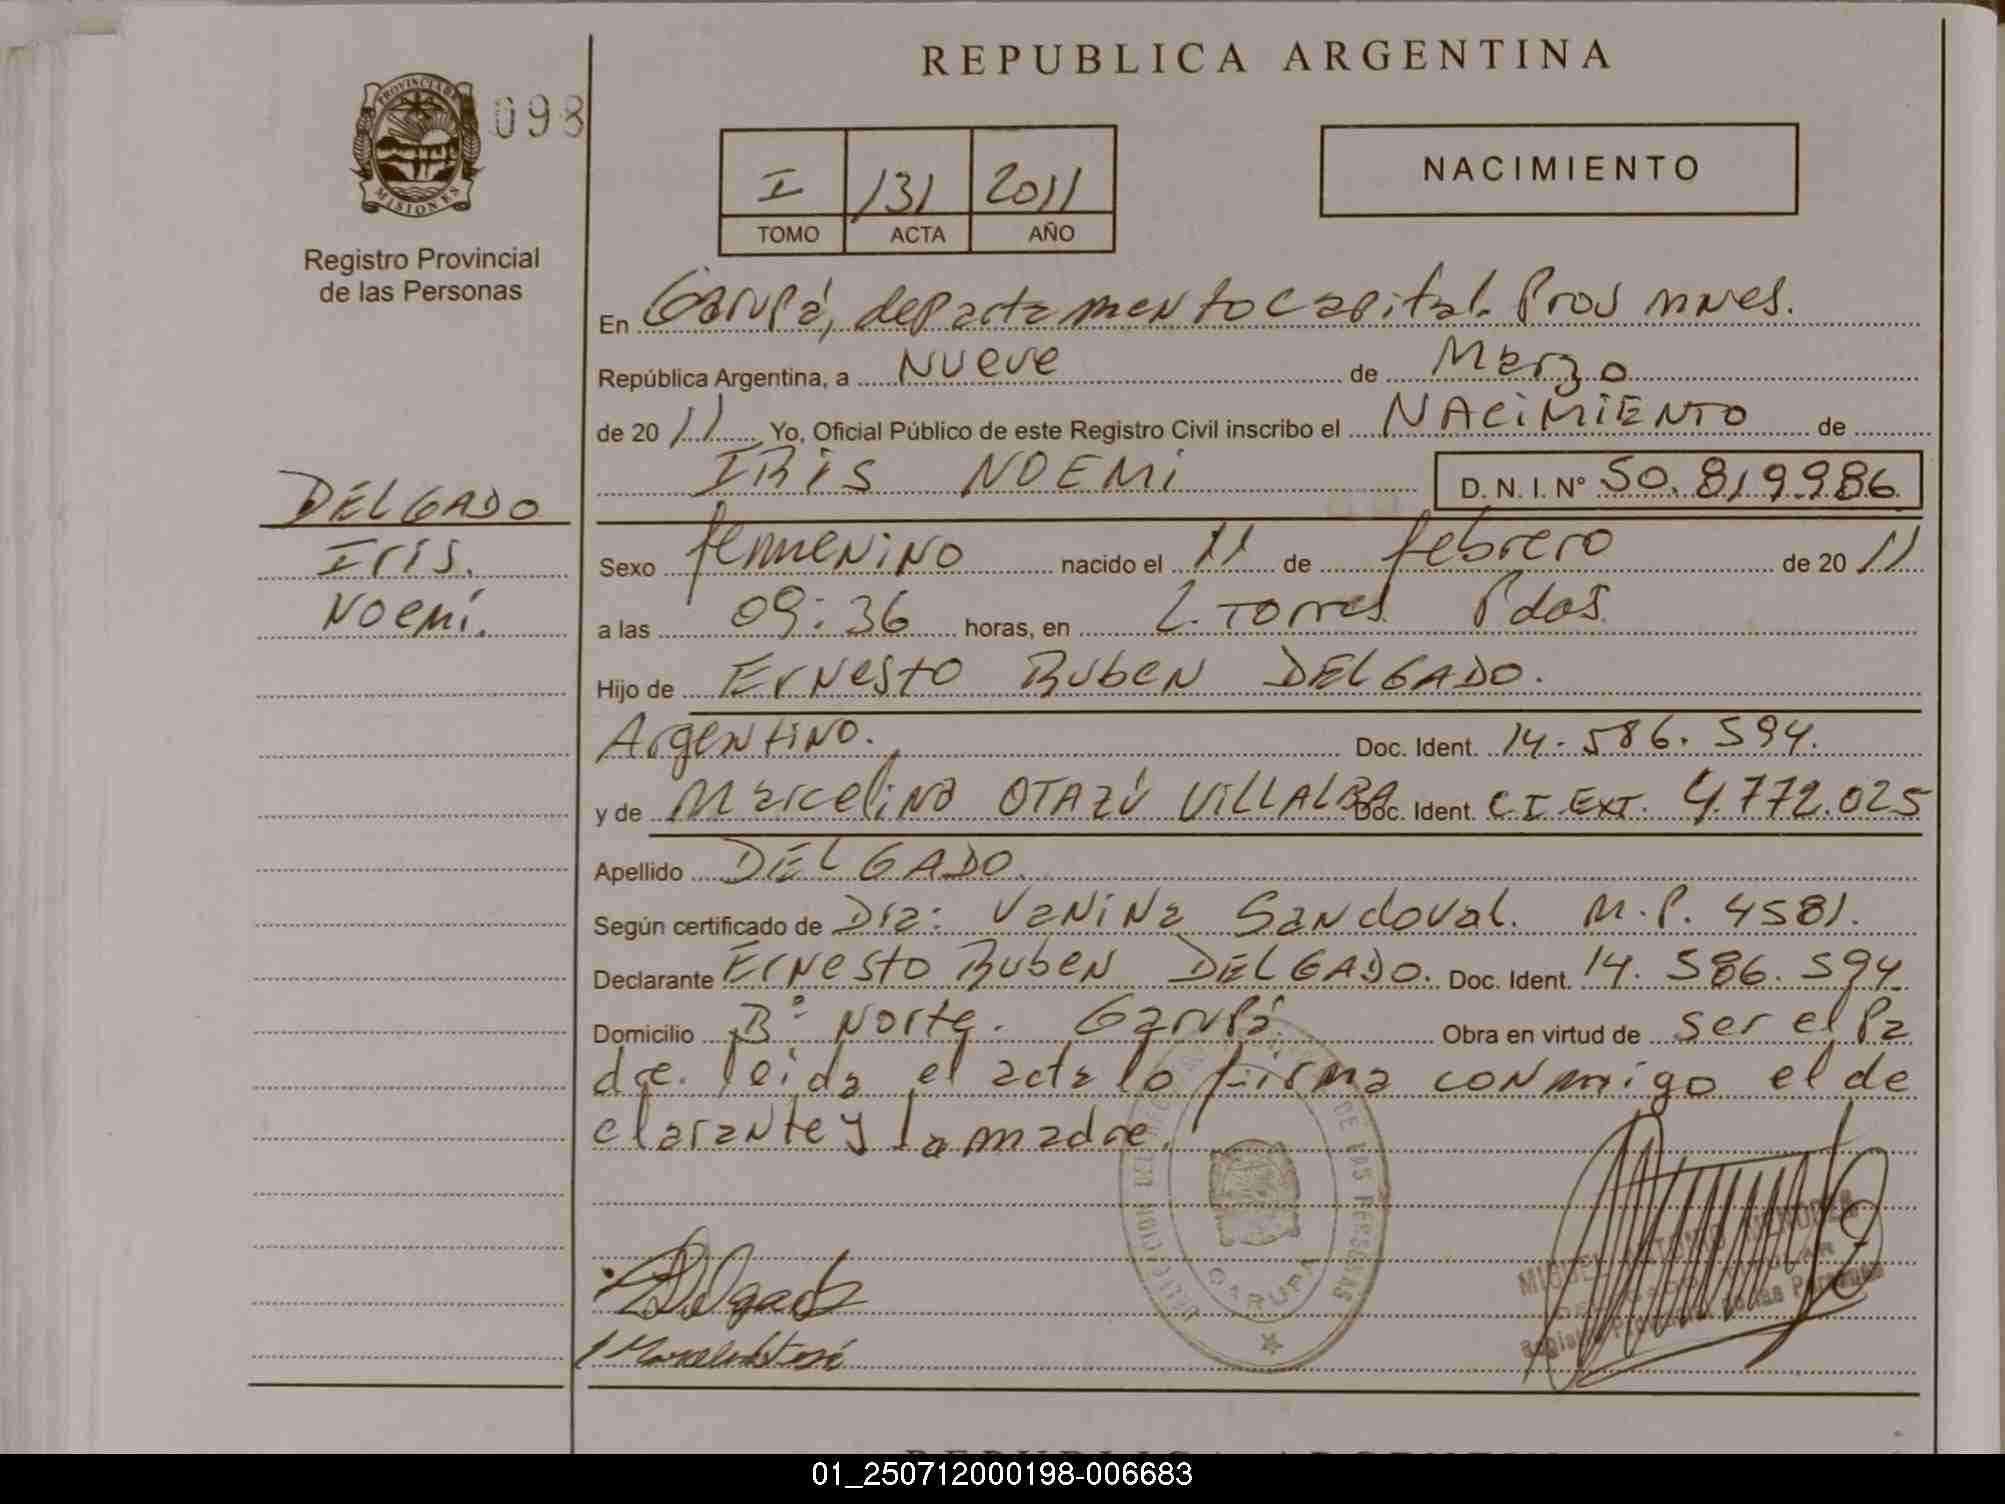 REPUBLICA ARGENTINA
PROVINCIA DE
MISIONES
098
Registro Provincial
de las Personas
I 131 2011
TOMO ACTA AÑO
NACIMIENTO
En Garupá, departamento capital. Pros mnes.
República Argentina, a Nueve de Marzo
de 2011 Yo, Oficial Público de este Registro Civil inscribo el NACIMIENTO de
IRIS NOEMI D. N. I. Nº 50.819.986
DELGADO
Iris.
Noemí.
Sexo femenino nacido el 11 de febrero de 2011
a las 09:36 horas, en L. Torres Pdas
Hijo de Ernesto Ruben DELGADO.
Argentino. Doc. Ident. 14.586.594.
y de Marcelina OTAZÚ VILLALBA Doc. Ident. C I EXT. 4.772.025
Apellido DELGADO.
Según certificado de Dra: Vanina Sandoval. M.P. 4581.
Declarante Ernesto Ruben DELGADO. Doc. Ident. 14.586.594
Domicilio Bº Norte. Garupá Obra en virtud de ser el Pa
dre. leida el acta lo firma conmigo el de
clarante y la madre.
DE LAS PERSONAS
GARUPA
Delgado
MIGUEL ANTONIO
Registro Provincial de las Personas
REPUBLICA ARGENTINA
01_250712000198-006683